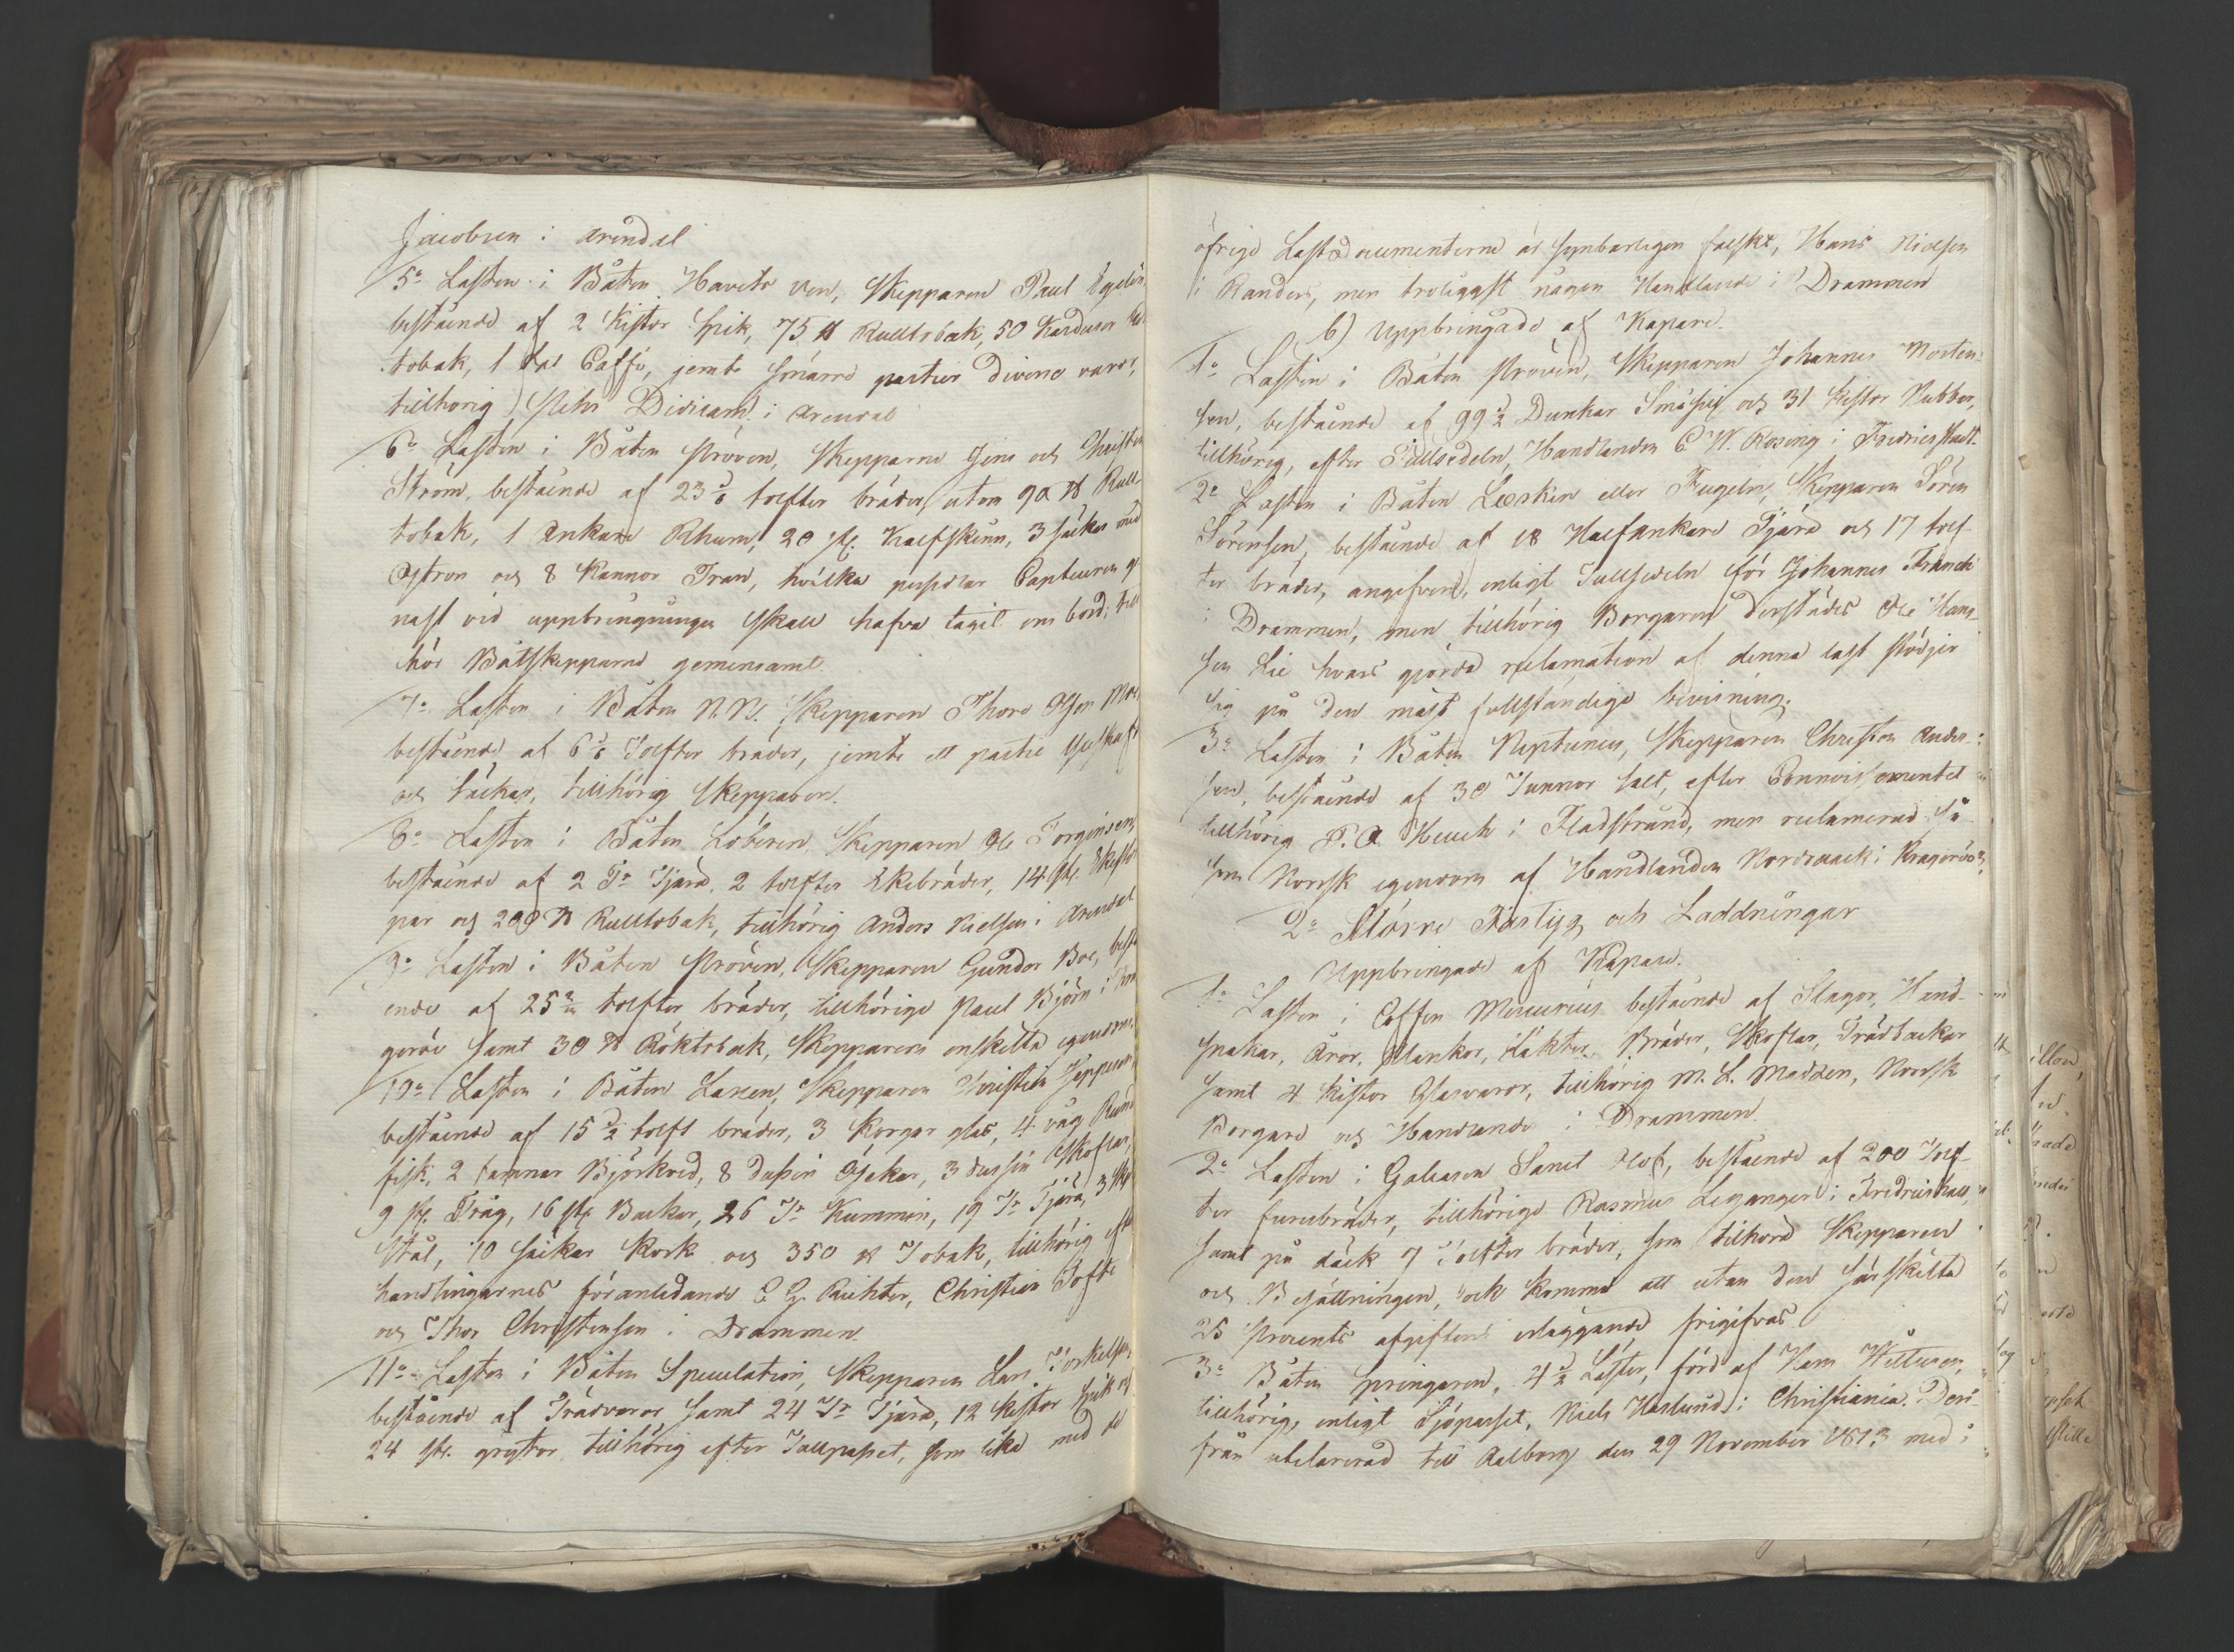 Jacobsen i Arendal
5o Lasten i Båten Havets Ven, Skepparen Paul
bestående af 2 Kistor Spik, 75 ℔ Rulltobak, 50 Karduser
tobak, 1 Caffe, jemte smärre partier diverse varor,
tillhörig Peter i Arendal
6o Lasten i Båten Pröven, Skepparne Jens och
Ström, bestående af 23 tolfter bräder, utom 90 ℔ Rull-
tobak, 1 Ankare Rhum, 20 st. Kalfskinn, 3 säckar med
Ostron och 8 Kannor Tran, hvilka persedlar Capteuren
vid uppbringningen skall hafva tagit om bord; till
hör Båtskepparne gemensamt.
7o Lasten i Båten N.N. Skepparen Thore Olsen
bestående af 6 Tolfter bräder, jemte ett partie
och bäckar, tillhörig Skepparen.
8o Lasten i Båten Löberen, Skepparen Ole
bestående af 2 Tr Tjära, 2 tolfter Ekebräder, 14 st.
par och 200 ℔ Rulltobak, tillhörig Anders Nielsen i Arendal
9o Lasten i Båten Pröven, Skepparen Gunder Boe, bestå
ende af 25 tolfter bräder, tillhörige Paul Björn i
geröe samt 30 ℔ Röktobak, Skepparens enskilta egendom.
10o Lasten i Båten Laxen, Skepparen Christian Jeppesen,
bestående af 15 1/2 tolft bräder, 3 Korgar glas, 4 våg Rund
fisk, 2 famnar Björkved, 8 dussin Öskar, 3 dussin Skoflar,
9 st. Tråg, 16 st. Backar, 26 Tr Kummin, 19 Tr Tjära, 3
Stål, 10 säckar Kork och 350 ℔ Tobak, tillhörig
handlingarnes föranledande C. G. Richter, Christian Tofte
och Thor Christensen i Drammen.
11o Lasten i Båten Speculation, Skepparen Lars Torkelsen,
bestående af Trädvaror samt 24 Tr Tjära, 12 Kistor Spik och
24 st. grytor tillhörig efter Tullpasset, som lika med de
öfrige Lastdocumenterne är synbarligen falskt, Hans Nielsen
i Randers, men troligast någon Handlande i Drammen
b) Uppbringade af Kapare.
1o Lasten i Båten Pröven, Skepparen Johannes Morten-
sen, bestående af 99 1/2 Dunkar Småspik och 31 Kistor Nubber,
tillhörig, efter Tullsedeln, Handlanden C. W. Rosing i Fredricstadt.
2o Lasten i Båten Lerken eller Fugeln, Skepparen Sören
Sörensen, bestående af 18 Halfankare Tjära och 17 tolf-
ter bräder, angifven, enligt Tullsedeln för Johannes Franch
i Drammen, men tillhörig Borgaren derstädes Ole Han-
sen Lie hvars gjorda reclamation af denna last stödjer
sig på den mäst fullständige bevisning.
3o Lasten i Båten Neptunus, Skepparen Christen Ander-
sen, bestående af 30 Tunnor Salt, efter Connoissementet
tillhörig P. A. Heuch i Fladstrand, men reclamerad så-
som Norsk egendom af Handlanden Nordraack i Krageröe.
2o Större Fartyg och Laddningar
Uppbringade af Kapare.
1o Lasten i Coffen Mercurius bestående af Slagor, Hand-
spakar, Åror, Plankor, Läkter, Bräder, Skoflar, Trädbackar
samt 4 Kistor Glasvaror, tillhörig M. L. Madsen, Norsk
Borgare och Handlande i Drammen.
2o Lasten i Galeasen Sanct Olof, bestående af 200 Tolf-
ter furubräder, tillhörige Rasmus Leganger i Fredrickshall,
samt på däck 7 Tolfter bräder, som tilhora Skepparen
och Besättningen, och komma att utan den särskilta
25 procents afgiftens erläggande frigifvas.
3o Båten Springaren, 4 1/2 Läster, förd af Hans
tillhörig, enligt Sjöpasset, Niels Haslund i Christiania. Der-
från utclarerad till Aalborg den 29 November 1813 med i